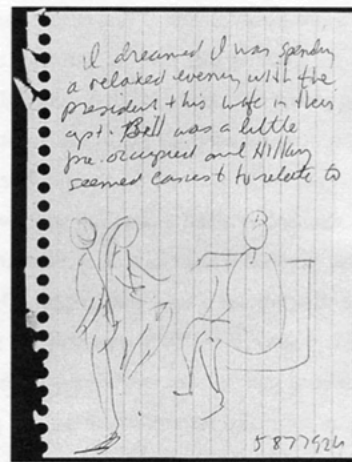 I dreamed I was spending
a relaxed evening with the
president + his wife in their
apt. Bill was a little
pre-occupied and Hillary
seemed easiest to relate to